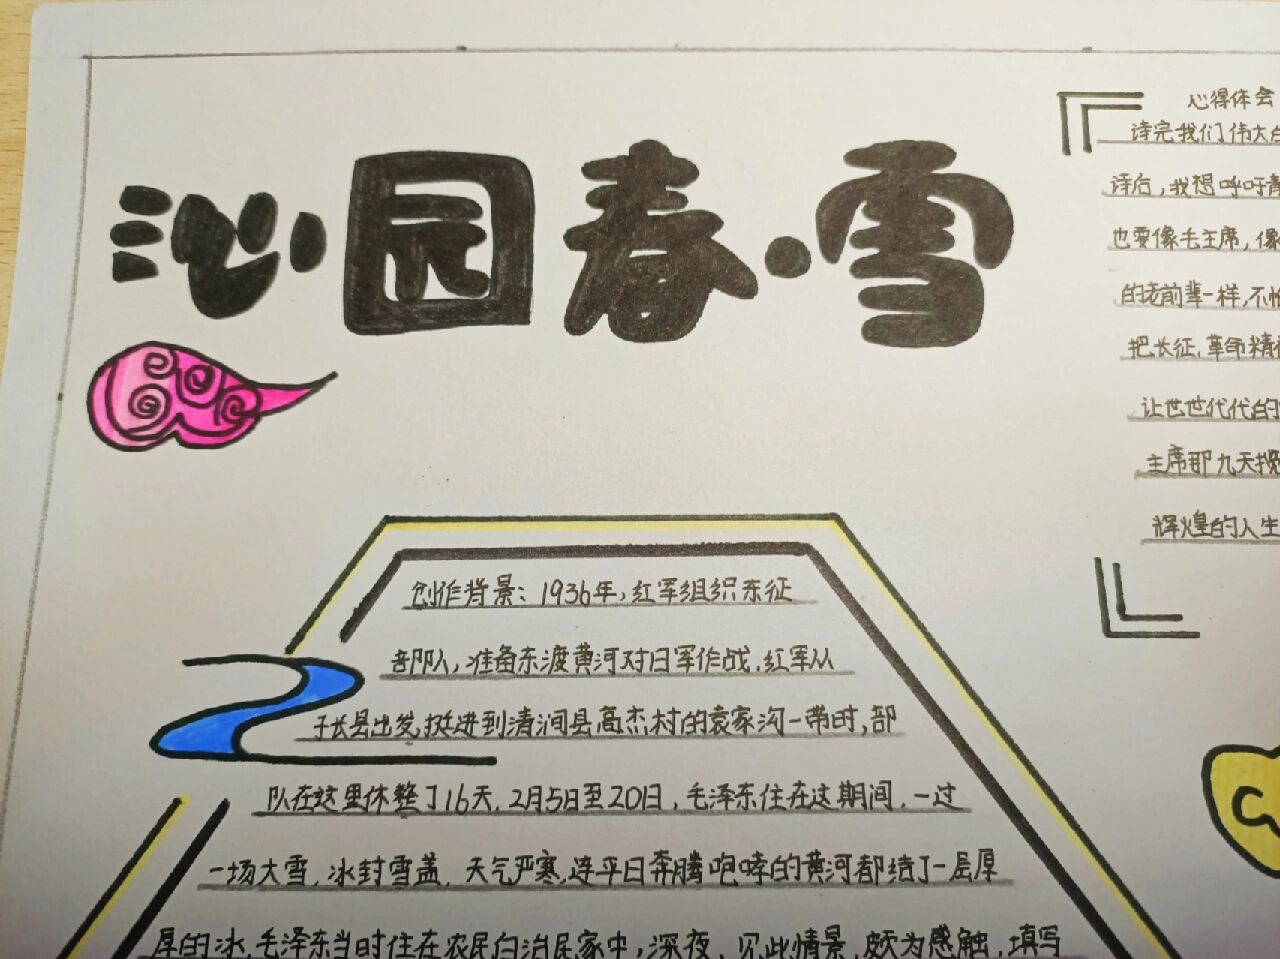 沁园春·雪
创作背景：1936年，红军组织东征
部队，准备东渡黄河对日军作战.红军从
子长县出发,挺进到清涧县高杰村的袁家沟一带时,部
队在这里休整了16天.2月5日至20日，毛泽东住在这期间，一过
一场大雪，冰封雪盖，天气严寒,连平日奔腾咆哮的黄河都结了一层厚
厚的冰.毛泽东当时住在农民白治民家中，深夜，见此情景，颇为感触，填写
心得体会
诗完我们伟大
诗后，我想呼吁青
也要像毛主席，像
的老前辈一样，不怕
把长征.革命精神
让世世代代的
主席那九天揽
辉煌的人生